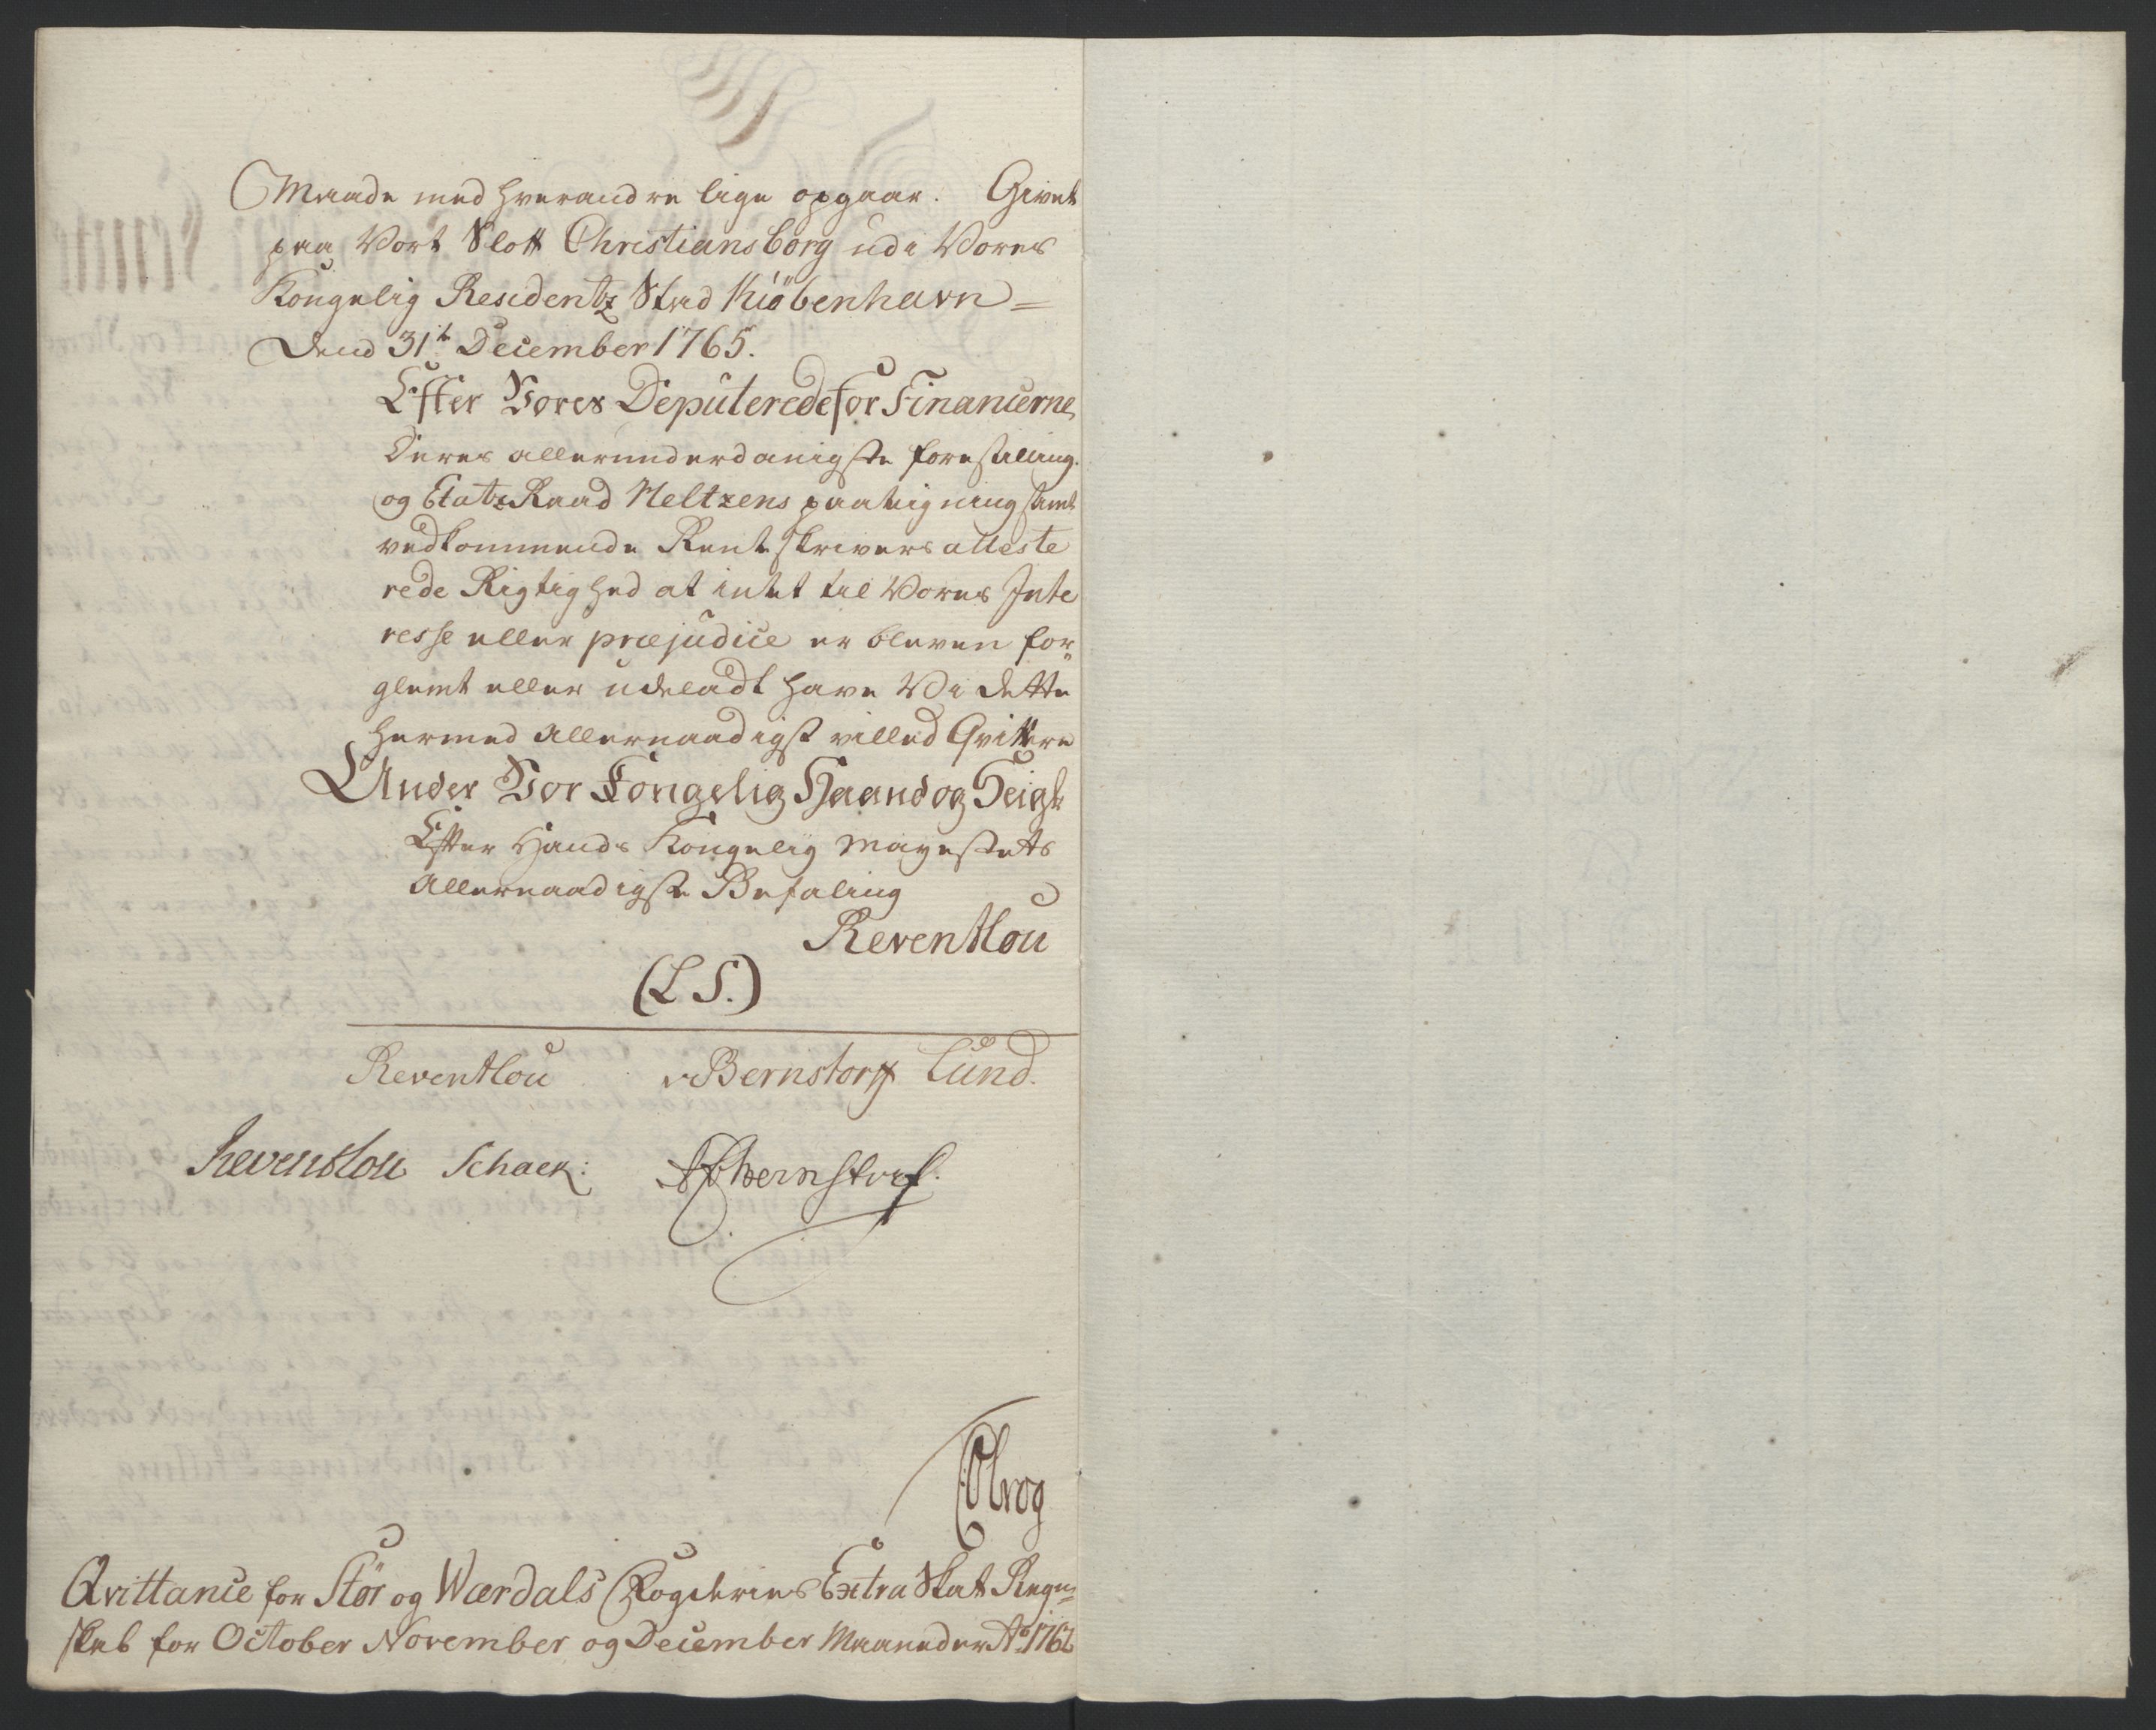 Maade med hverandre lige opgaar. Givet
paa Vort Slott Christiansborg udi Vores
Kongelig Residentz Stad Kiöbenhavn =
Dend 31te December 1765.
Efter Vores Deputerede for Financerne,
Deres allerunderdanigste forestilling
og Etatz Raad Neltzens paategning samt
vedkommende Rent skrivers atteste
rede Rigtighed at intet til Vores Inte
resse eller præjudice er bleven for„
glemt eller udeladt have Vi dette
hermed Allernaadigst villed Qvittere
Under Vor Kongelig Haand og Seigl
Efter Hands Kongelig Mayestets
Allernaadigste Befaling
Reventlou
(L S.)
Reventlou v Bernstorff Lund.
Reventlou Schack: Bernstorf.
Qvittance for Stör og Wærdals Fogderies Extra Skat Regn=
skab for October November og December Maaneder Ao 1762